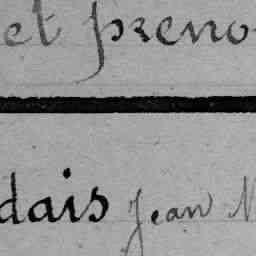 et preno
dais Jean